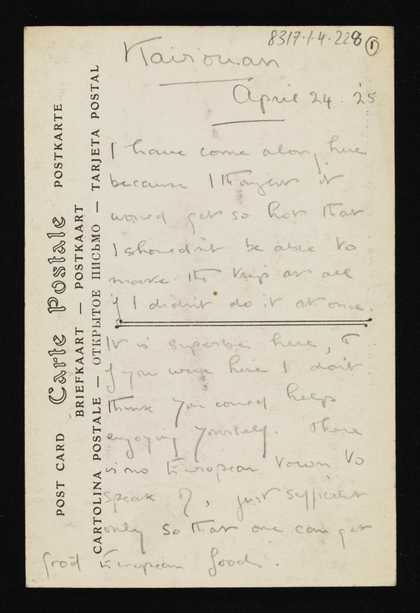 8317·1·4·228 ①
Kairouan
April 24. '25
I have come along here
because I thought it
would get so hot that
I shouldn't be able to
make the trip at all
if I didn't do it at once.
It is superbe here, &
if you were here I don't
think you could help
enjoying yourself. There
is no European town to
speak of, just sufficient
only so that one can get
good European food.
POST CARD Carte Postale POSTKARTE
BRIEFKAART — POSTKAART
CARTOLINA POSTALE — ОТКРЫТОЕ ПИСЬМО — TARJETA POSTAL